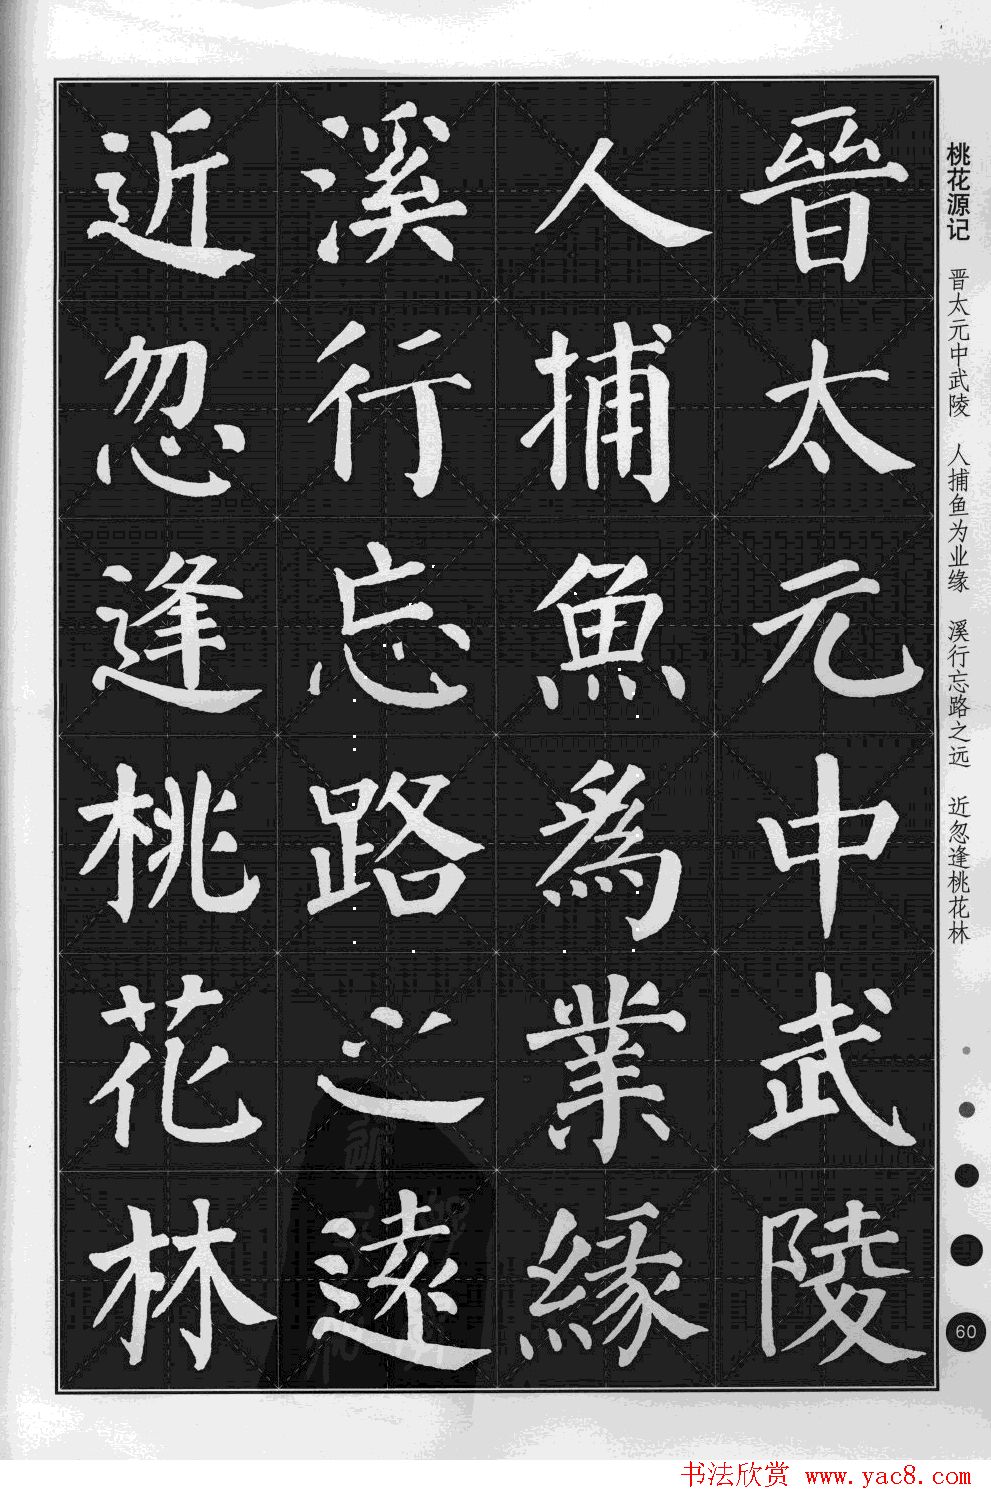 晉太元中武陵
人捕魚為業緣
溪行忘路之遠
近忽逢桃花林
桃花源记 晋太元中武陵 人捕鱼为业缘 溪行忘路之远 近忽逢桃花林
60
书法欣赏 www.yac8.com